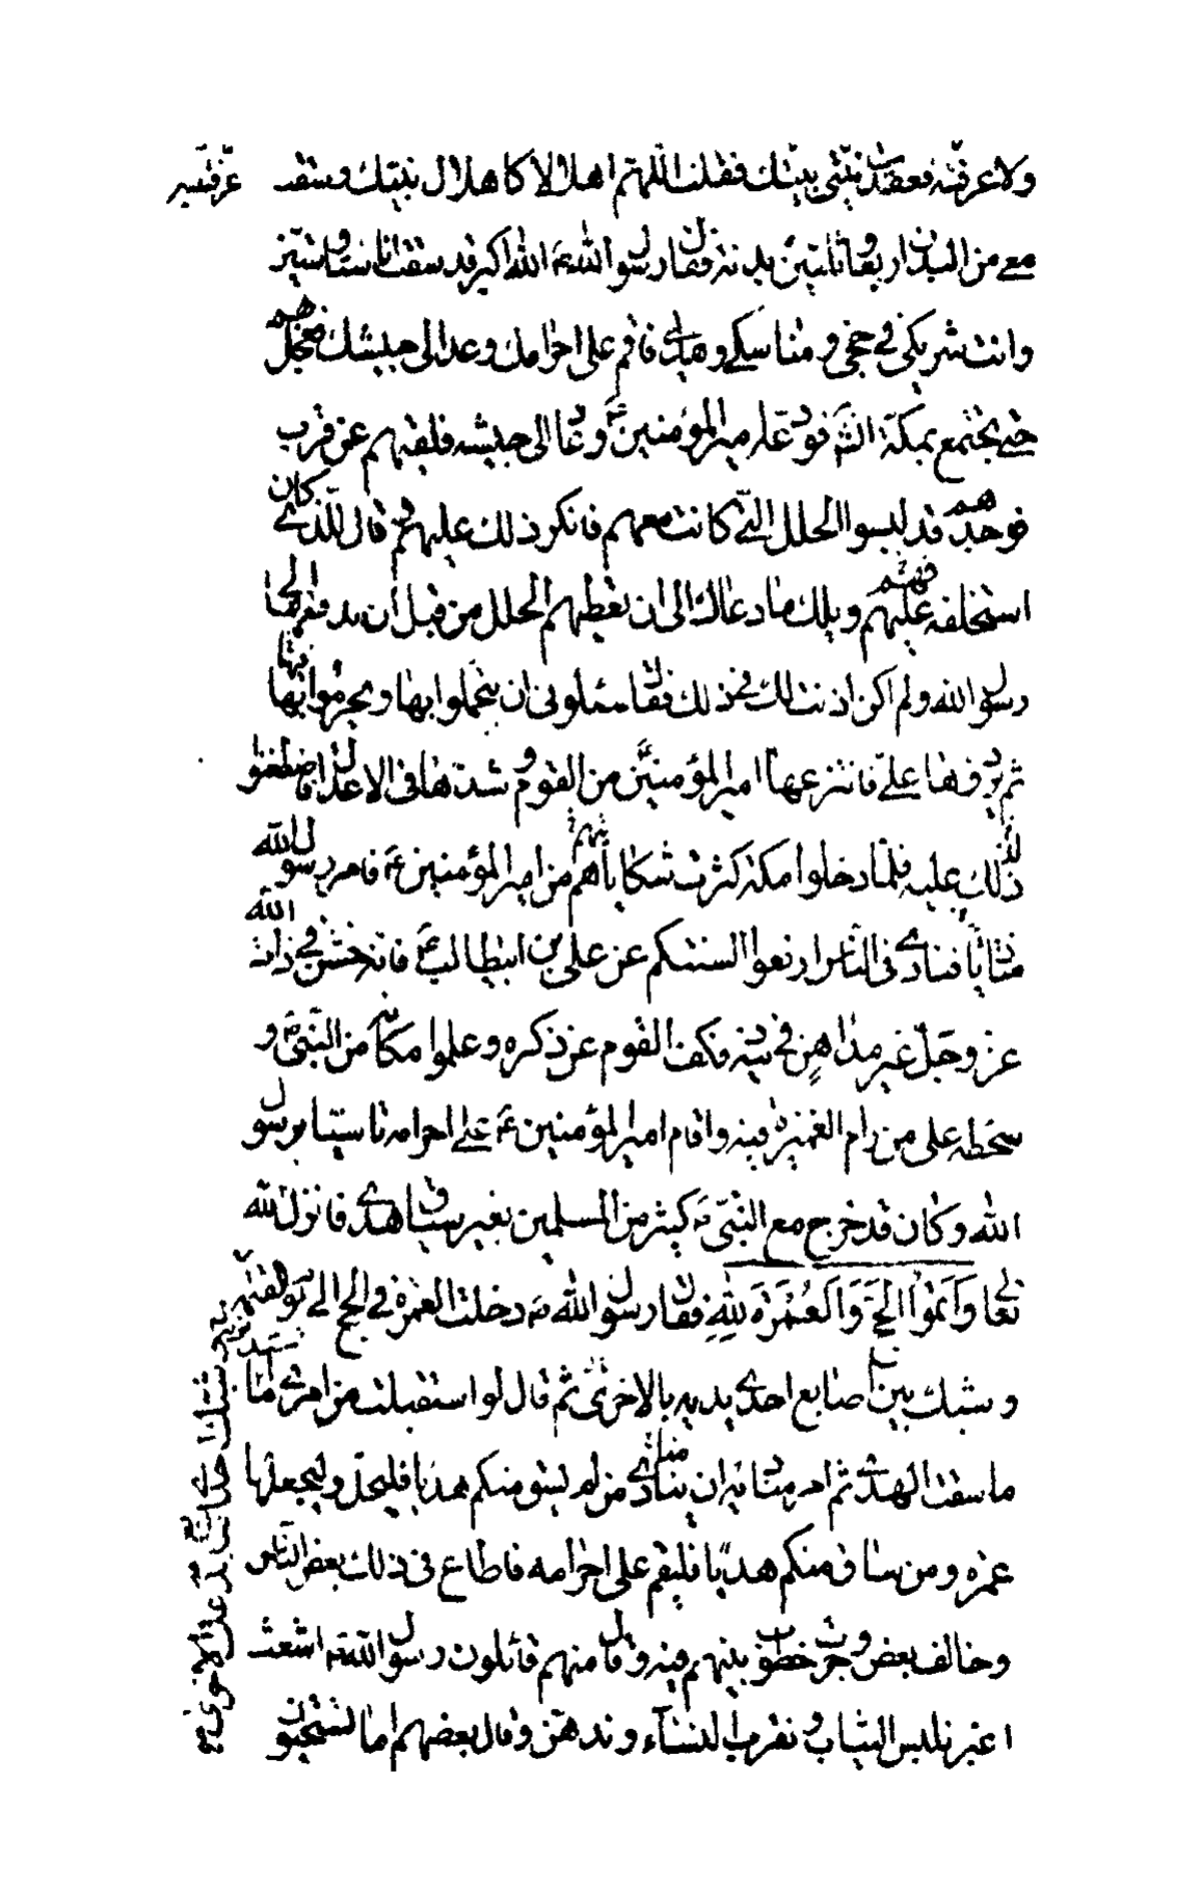 ولا عرفته فعقدت نيتى بنيتك فقلت اللهم اهلالا كاهلال نبيك وسقت
معى من البدن اربعا وثلثين بدنة فقال رسول الله ص الله اكبر قد سقت انا ستا وستين
وانت شريكى في حجى ومناسكى وهديى فاقم على احرامك وعد الى جيشك فعجل بهم الى
حتى نجتمع بمكة انشاء فودعه امير المؤمنين ع وعاد الى جيشه فلقيهم عن قرب
فوجدهم قد لبسوا الحلل التى كانت معهم فانكر ذلك عليهم وقال للذى كان
استخلفه عليهم فيهم ويلك ما دعاك الى ان تعطيهم الحلل من قبل ان ندفعها الى
رسول الله ولم اكن اذنت لك في ذلك فقال سئلونى ان يتجملوا بها ويحرموا فيها
ثم يردونها على فانتزعها امير المؤمنين ع من القوم وشدها في الاعدال فاضطغنوا
لذلك عليه فلما دخلوا مكة كثرت شكاياتهم من امير المؤمنين ع فامر رسول الله
مناديا فنادى في الناس ارفعوا السنتكم عن على بن ابيطالب ع فانه خشن في ذات الله
عز وجل غير مداهن في دينه فكف القوم عن ذكره وعلموا مكانه من النبى ص و
سخطه على من رام الغميزة فيه واقام امير المؤمنين ع على احرامه تاسيا برسول
الله وكان قد خرج مع النبى ص كثير من المسلمين بغير سياق هدى فانزل الله
تعالى وَاَتِمُّوا الحَجَّ وَالعُمْرَةَ لِلّهِ فقال رسول الله ص دخلت العمرة في الحج الى يوم القيمة
وشبك بين اصابع احدى يديه بالاخرى ثم قال لو استقبلت من امرى ما
ما سقت الهدى ثم امر مناديه ان ينادى من لم يسق منكم هديا فليحل وليجعلها
عمرة ومن ساق منكم هديا فليقم على احرامه فاطاع في ذلك بعض الناس
وخالف بعض وجرت خطوب بينهم فيه وقال منهم قائلون رسول الله ص اشعث
اغبر نلبس الثياب ونقرب النساء وندهن وقال بعضهم اما تستحيون